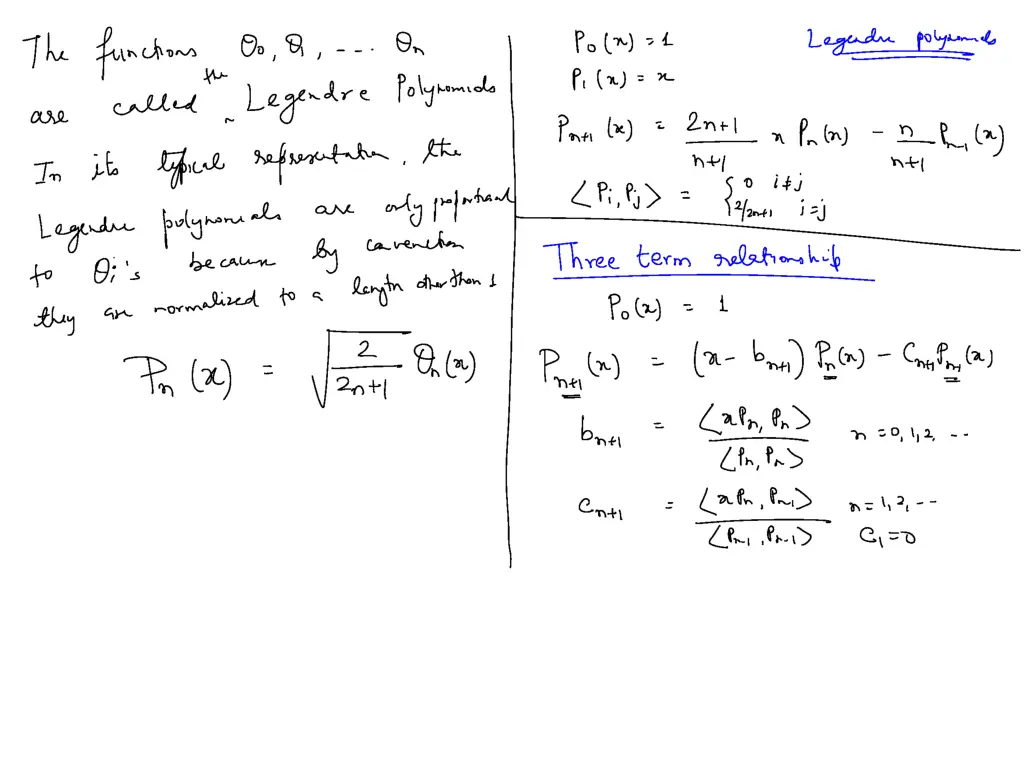 The functions θ0, θ1, --- θn
are called the Legendre Polynomials
In its typical representation, the
Legendre polynomials are only proportional
to θi's because by convention
they are normalized to a length other than 1
Pn(x) = √(2/(2n+1)) θn(x)
Legendre polynomials
P0(x) = 1
P1(x) = x
Pn+1(x) = (2n+1)/(n+1) x Pn(x) - n/(n+1) Pn-1(x)
<Pi, Pj> = { 0 i≠j
2/2n+1 i=j
Three term relationship
P0(x) = 1
Pn+1(x) = (x - bn+1) Pn(x) - Cn+1 Pn-1(x)
bn+1 = <xPn, Pn> / <Pn, Pn> n = 0, 1, 2, --
Cn+1 = <xPn, Pn-1> / <Pn-1, Pn-1> n = 1, 2, --
C1 = 0